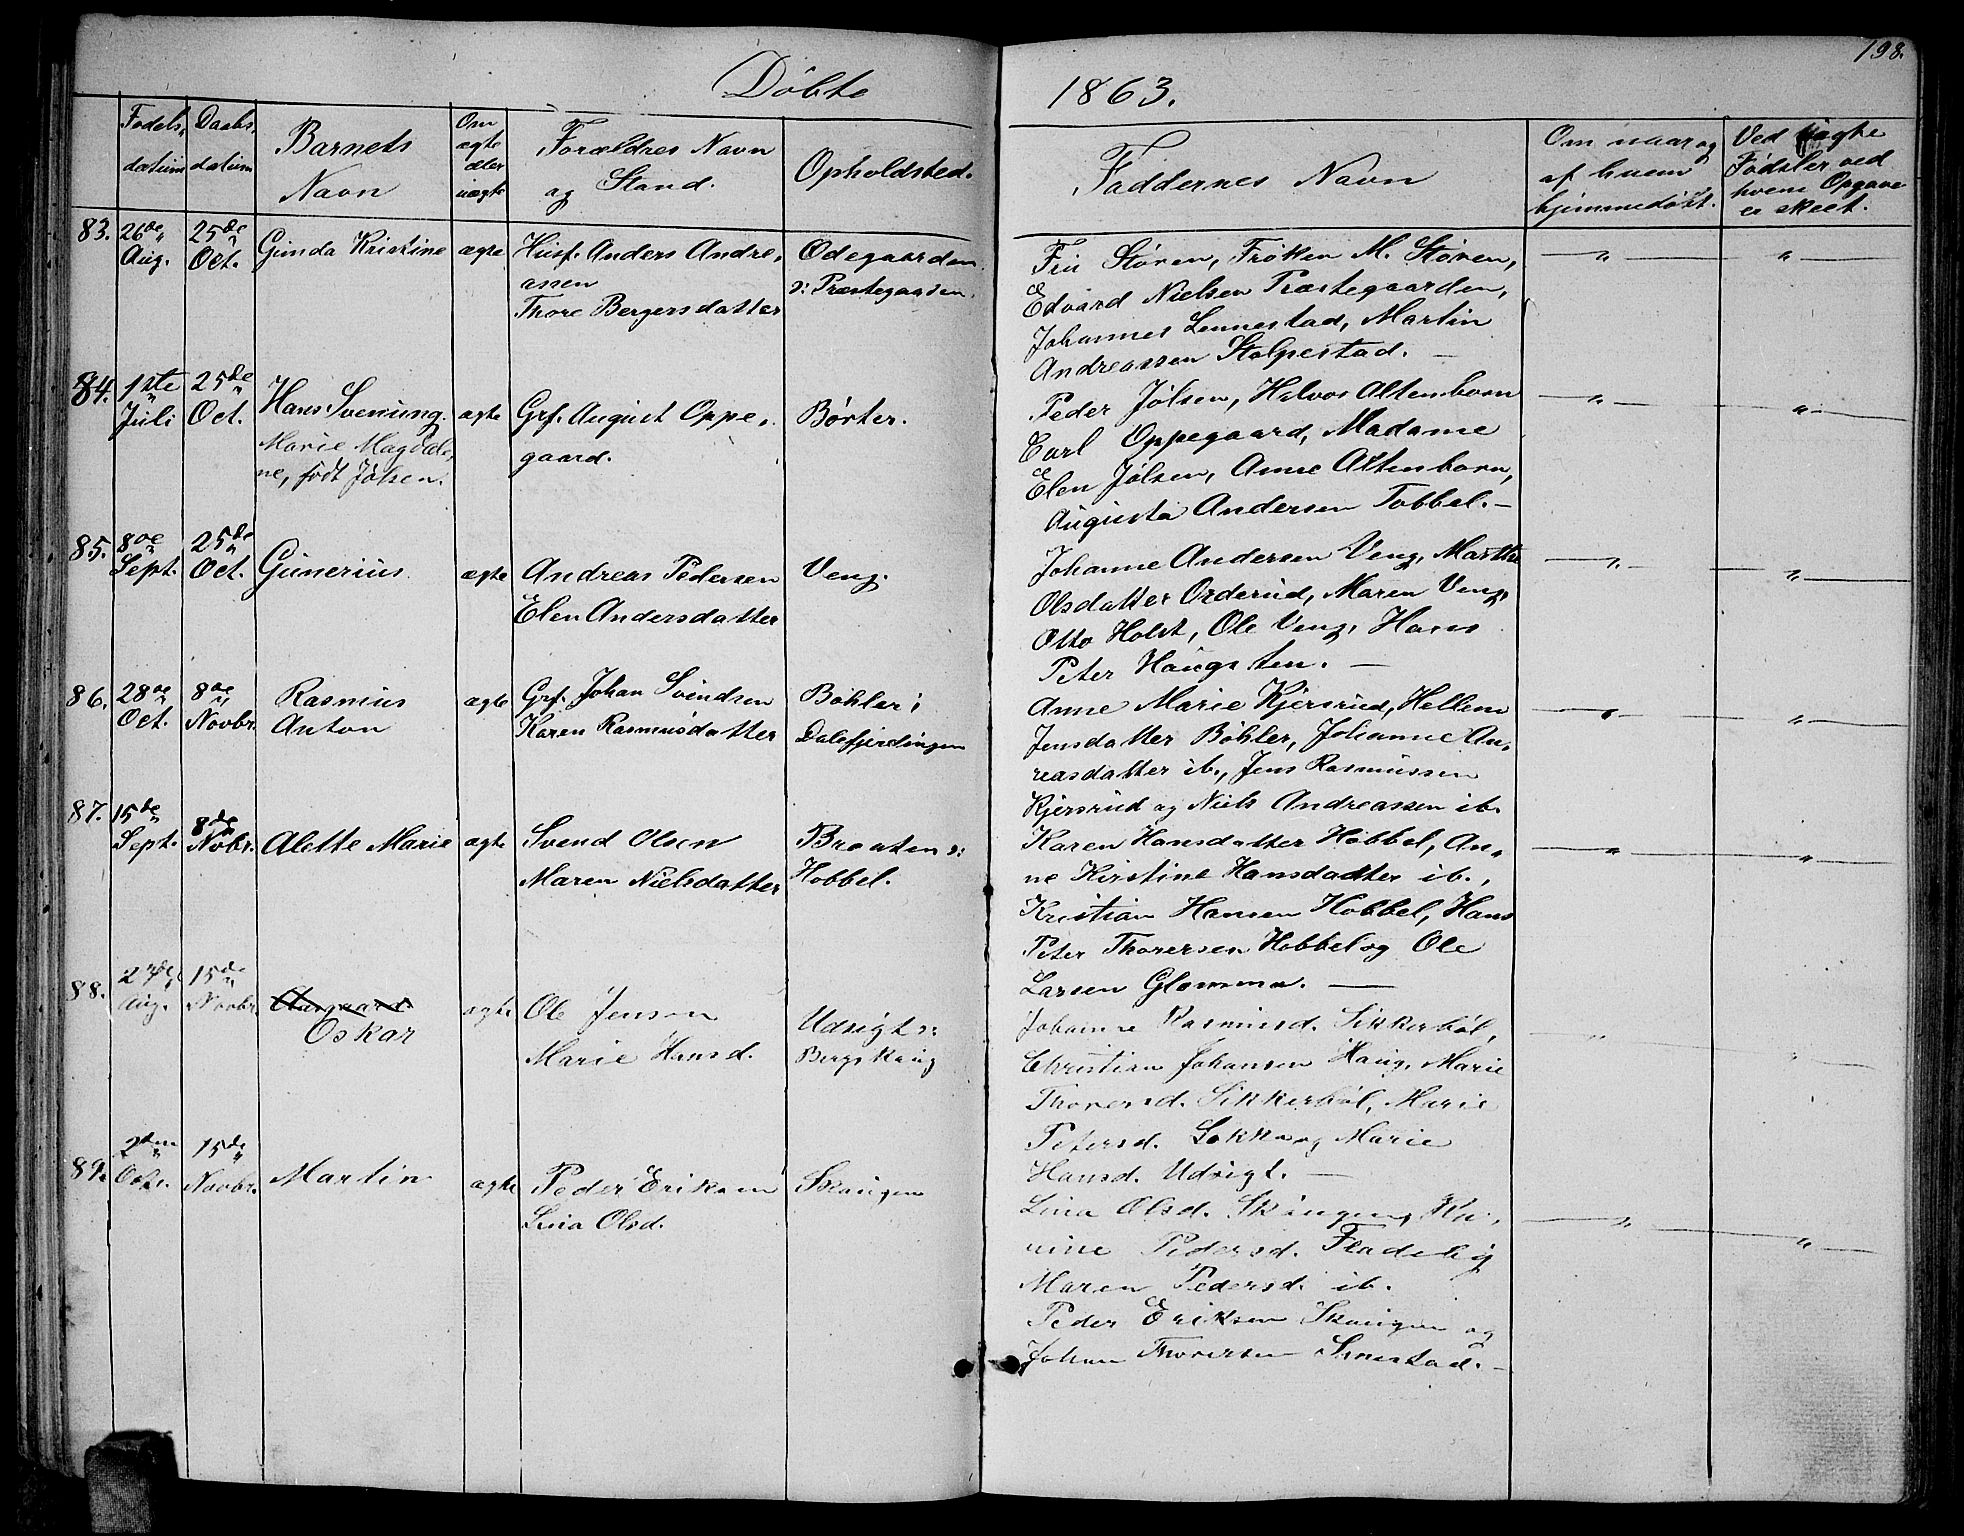 Døbte
1863.
198.
Fødels,
datum
Daabs,
datum
Barnets
Navn
Om
ægte
eller
uægte
Forældres Navn
og Stand.
Opholdsted.
Faddernes Navn
Om naar og
af hvem
hjemmedøbt.
Ved uægte
Fødsler ved
hvem Opgave
er skeet.
83.
26de
Aug.
25de
Oct.
Gunda Kristine
ægte
Husf. Anders Andre,
assen
Thore Bergersdatter
Ødegaarden
s: Præstegaarden.
Fru Støren, Frøken M. Støren,
Edvard Nielsen Præstegaarden,
Johannes Lennestad, Martin
Andreassen Stolpestad. —
84.
1ste
Juli
25de
Oct.
Hans Svenung.
ægte
Grf. August Oppe,
gaard.
Marie Magdale,
ne, født Jølsen.
Børter.
Peder Jølsen, Halvor Altenborn
Carl Oppegaard, Madame
Elen Jølsen, Anne Altenborn,
Augusta Andersen Tobbel. —
85.
8de
Sept.
25de
Oct.
Gunerius
ægte
Andreas Pedersen
Elen Andersdatter
Veng.
Johanne Andersen Veng, Marthe
Olsdatter Orderud, Maren Veng,
Otto Holst, Ole Veng, Hans
Peter Haugsten. —
86.
28de
Oct.
8de
Novbr.
Rasmus
Anton
ægte
Grf. Johan Svendsen
Karen Rasmusdatter
Bøhler i
Dalefjerdingen
Anne Marie Kjersrud, Hellene
Jensdatter Bøhler, Johanne An,
reasdatter ib., Jens Rasmussen
Kjersrud og Niels Andreassen ib.
87.
15de
Sept.
8de
Novbr.
Alette Marie
ægte
Svend Olsen
Maren Nielsdatter
Braaten s:
Hobbel.
Karen Hansdatter Hobbel, An,
ne Kirstine Hansdatter ib.,
Kristian Hansen Hobbel, Hans
Peter Thorersen Hobbel og Ole
Larsen Glomma. —
88.
27de
Aug.
15de
Novbr.
Oskar
ægte
Ole Jensen
Marie Hansd.
Udsigt s:
Bergskaug
Johanne Rasmusd. Sikkerbøl,
Christian Johansen Haug, Marie
Thorersd. Sikkerbøl, Marie
Petersd. Løkka og Marie
Hansd. Udsigt. —
89.
2den
Octr.
15de
Novbr.
Martin
ægte
Peder Eriksen
Lina Olsd.
Skaugen
Lina Olsd. Skaugen, Ka,
rine Pedersd. Fladeby
Maren Pedersd. ib.
Peder Eriksen Skaugen og
Johan Thorersen Smestad. —